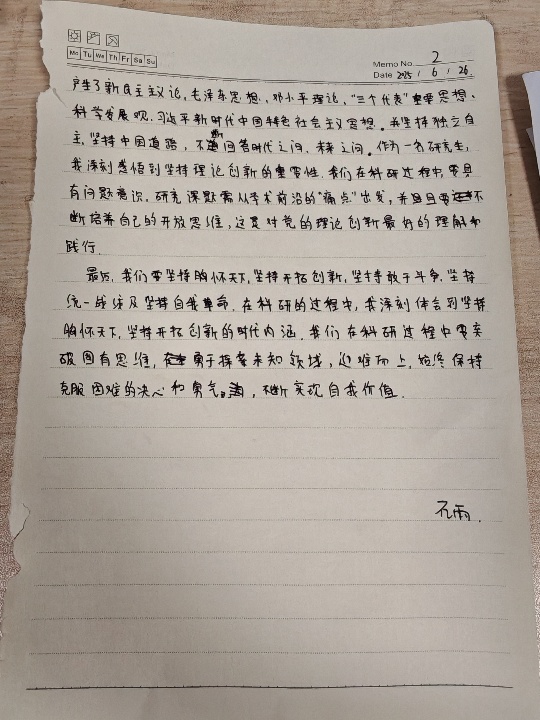 Mo Tu We Th Fr Sa Su
Memo No. 2
Date 2025 / 6 / 26
产生了新民主主义论,毛泽东思想,邓小平理论,“三个代表”重要思想、
科学发展观、习近平新时代中国特色社会主义思想。并坚持独立自
主,坚持中国道路,不断回答时代之问、未来之问。作为一名研究生,
我深刻感悟到坚持理论创新的重要性。我们在科研过程中,要具
有问题意识,研究课题需从学术前沿的“痛点”出发,并且要不
断培养自己的开放思维,这是对党的理论创新最好的理解和
践行。
最后,我们要坚持胸怀天下,坚持开拓创新,坚持敢于斗争,坚持
统一战线及坚持自我革命。在科研的过程中,我深刻体会到坚持
胸怀天下,坚持开拓创新的时代内涵。我们在科研过程中要突
破固有思维,勇于探索未知领域,迎难而上,始终保持
克服困难的决心和勇气,不断实现自我价值。